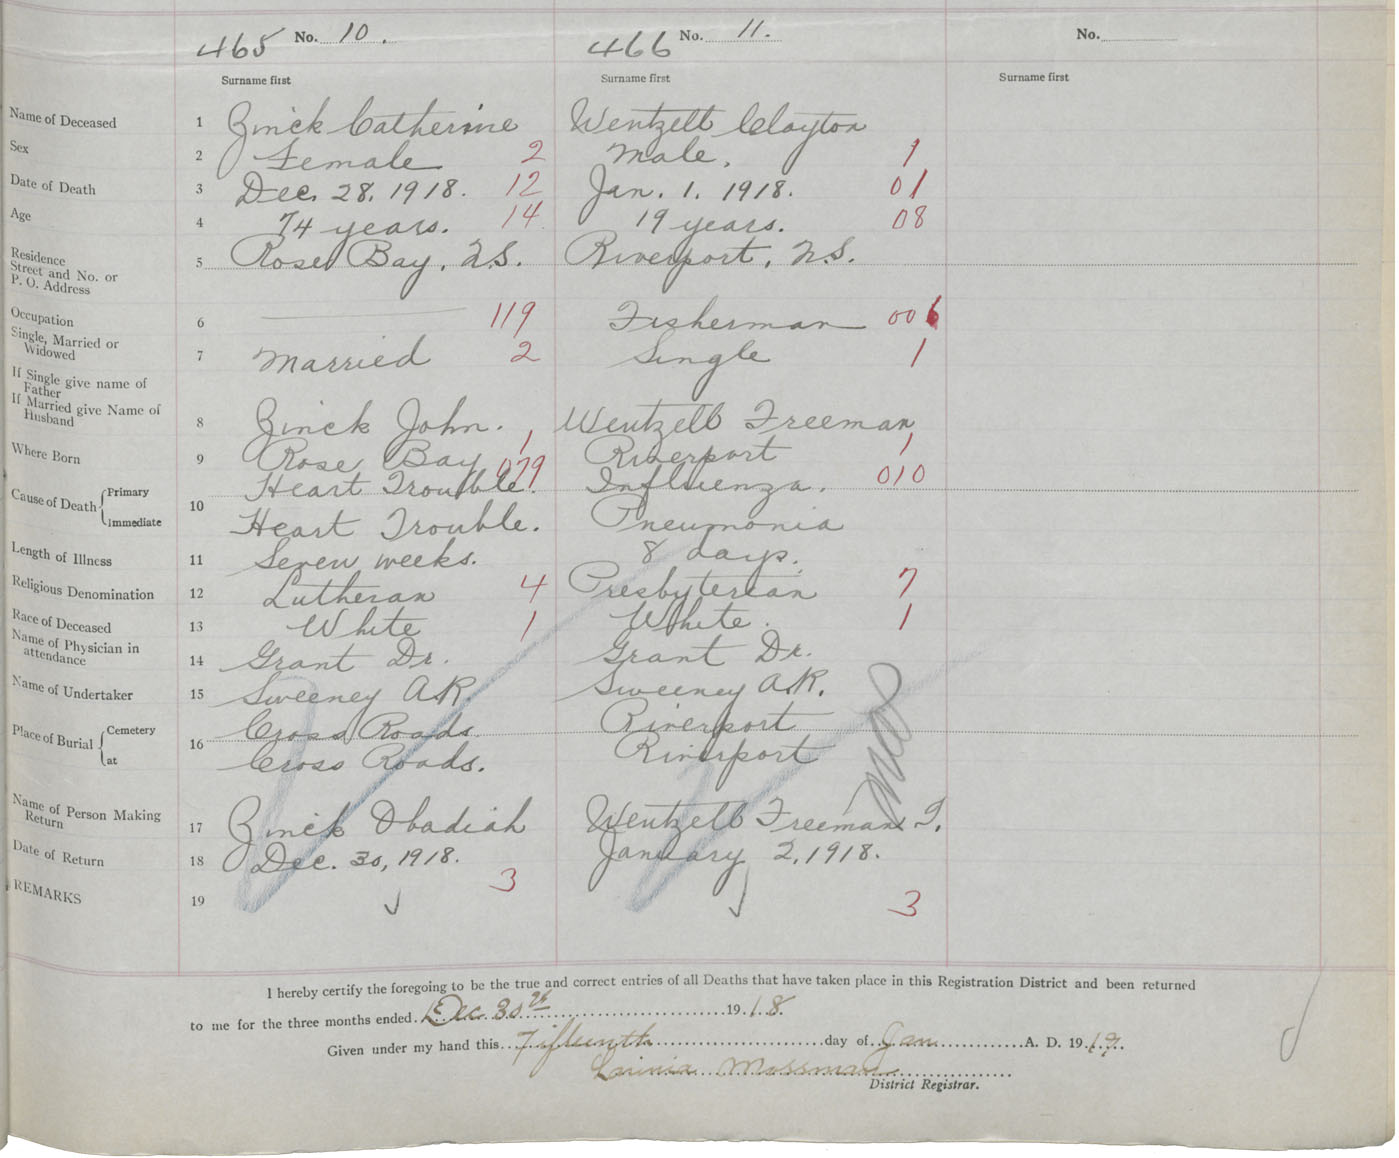 465 No. 10. 466 No. 11. No.
Surname first Surname first Surname first
Name of Deceased 1 Zinck Catherine Wentzell Clayton
Sex 2 Female 2 Male. 1
Date of Death 3 Dec. 28. 1918. 12 Jan. 1. 1918. 01
Age 4 74 years. 14 19 years. 08
Residence
Street and No. or
P. O. Address 5 Rose Bay, N.S. Riverport, N.S.
Occupation 6 119 Fisherman 006
Single, Married or
Widowed 7 Married 2 Single 1
If Single give name of
Father
If Married give Name of
Husband 8 Zinck John. Wentzell Freeman
Where Born 9 Rose Bay 1 Riverport 1
Cause of Death Primary Heart Trouble. 079 Influenza. 010
10
Immediate Heart Trouble. Pneumonia
Length of Illness 11 Seven weeks. 8 days.
Religious Denomination 12 Lutheran 4 Presbyterian 7
Race of Deceased 13 White 1 White. 1
Name of Physician in
attendance 14 Grant Dr. Grant Dr.
Name of Undertaker 15 Sweeney A.R. Sweeney A.R.
Place of Burial Cemetery Cross Roads. Riverport
16
at Cross Roads. Riverport
Name of Person Making
Return 17 Zinck Obadiah Wentzell Freeman T.
Date of Return 18 Dec. 30, 1918. January 2, 1918.
REMARKS 19 3 3
I hereby certify the foregoing to be the true and correct entries of all Deaths that have taken place in this Registration District and been returned
to me for the three months ended Dec 30th 1918.
Given under my hand this Fifteenth day of Jan A. D. 1919.
Mossman
District Registrar.